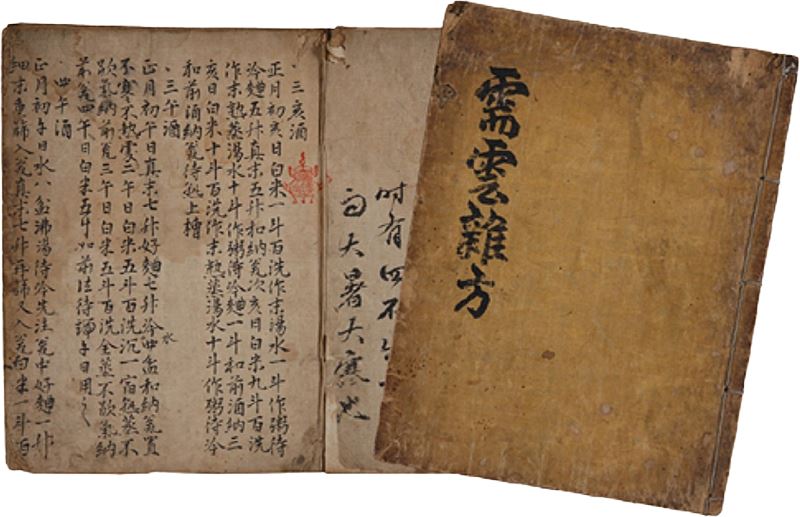 需雲雜方
時有四不
大暑大寒也
三亥酒
正月初亥日白米一斗百洗作末湯水一斗作粥待
冷麯五升真末五升和納瓮次亥日白米九斗百洗
作末熟蒸湯水十斗作粥待冷麯一斗和前酒納三
亥日白米十斗百洗作末熟蒸湯水十斗作粥待冷
和前酒納瓮待熟上槽
三午酒
正月初午日真末七升好麯七升冷水四盆和納瓮置
不寒不熱處二午日白米五斗百洗沉一宿熟蒸不
歇氣納前瓮三午日白米五斗百洗全蒸不歇氣納
前瓮四午日白米五斗如前法待端午日用之
四午酒
正月初午日水八盆沸湯待冷先注瓮中好麯一升
細末重篩入瓮真末七升再篩又入瓮白米一斗百